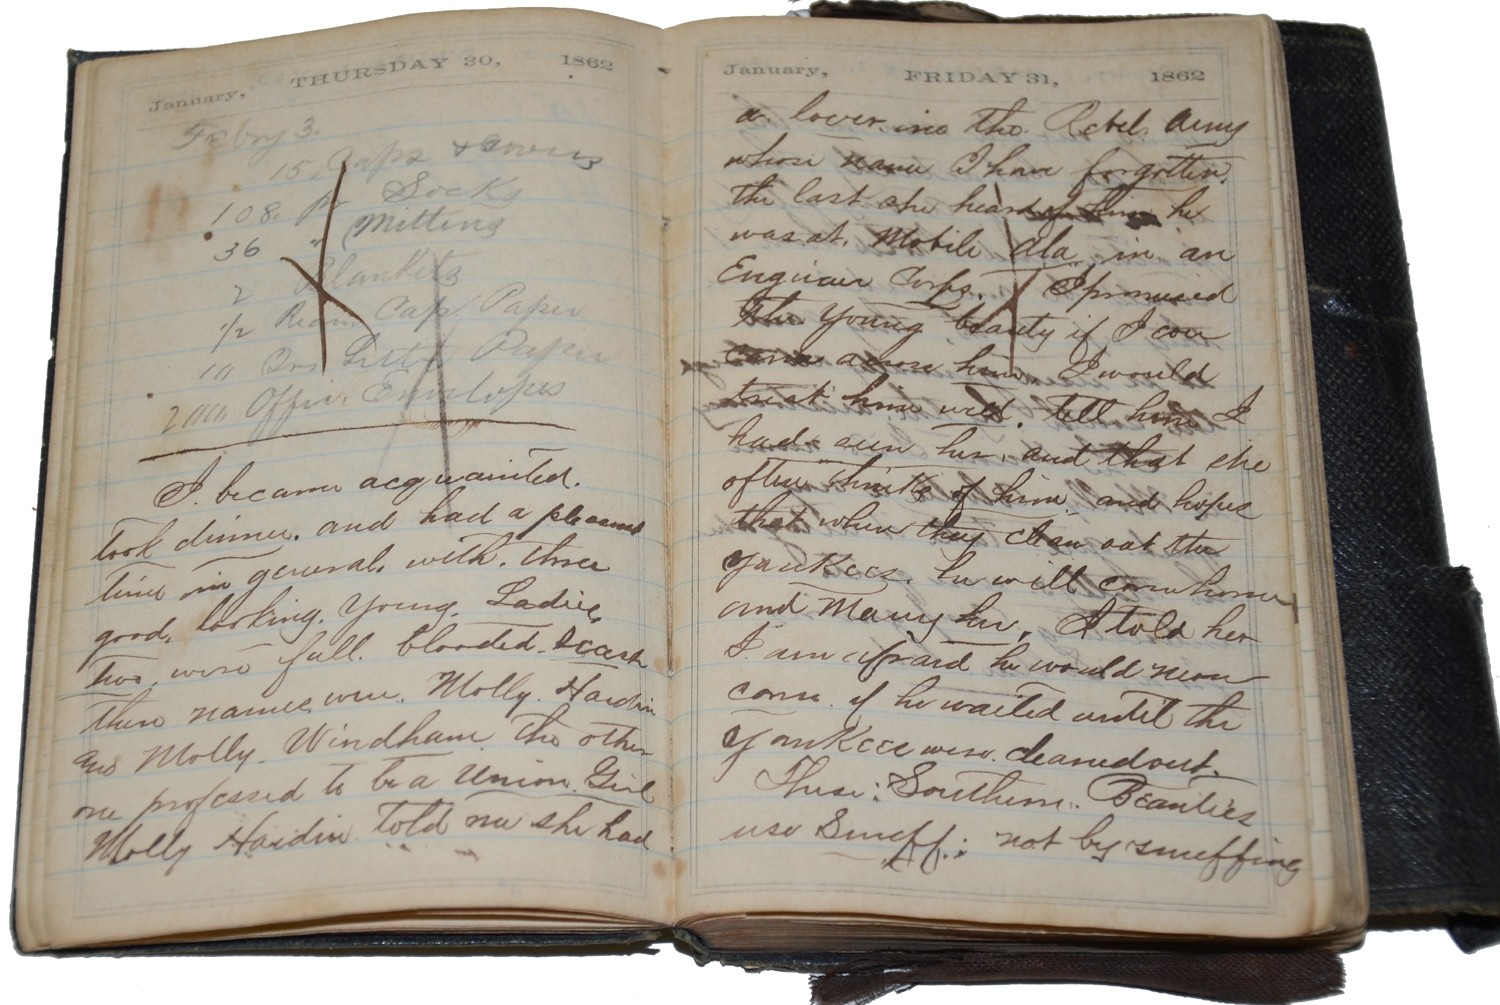 January, THURSDAY 30, 1862
Feby 3.
15 Caps & Covers
108 Pr Socks
36 " Mittens
2 Blankets
1/2 Ream Cap Paper
10 Qrs Letter Paper
2000 Offic. Envelopes
I. became acquainted.
took dinner. and had a pleasant
time in general. with. three
good. looking. Young. Ladies,
two. were full. blooded. Secesh
there names were. Molly. Hardin
and Molly. Windham. the other
one professed to be a Union. Girl
Molly Hardin told me she had
January, FRIDAY 31, 1862
a. lover. in. the. Rebel. Army
whose name I have forgotten,
the last she heard of him he
was at. Mobile Ala. in an
Engineer Corps. I promised
the Young beauty if I cou
come across him. I would
treat him well. tell him I
had seen her. and that she
often thinks of him, and hopes
that when they clean out the
Yankees. he will come home
and Marry her, I told her
I am afraid he would never
come. if he waited until the
Yankees were. cleaned out.
These: Southern. Beauties
use Snuff.: not by snuffing